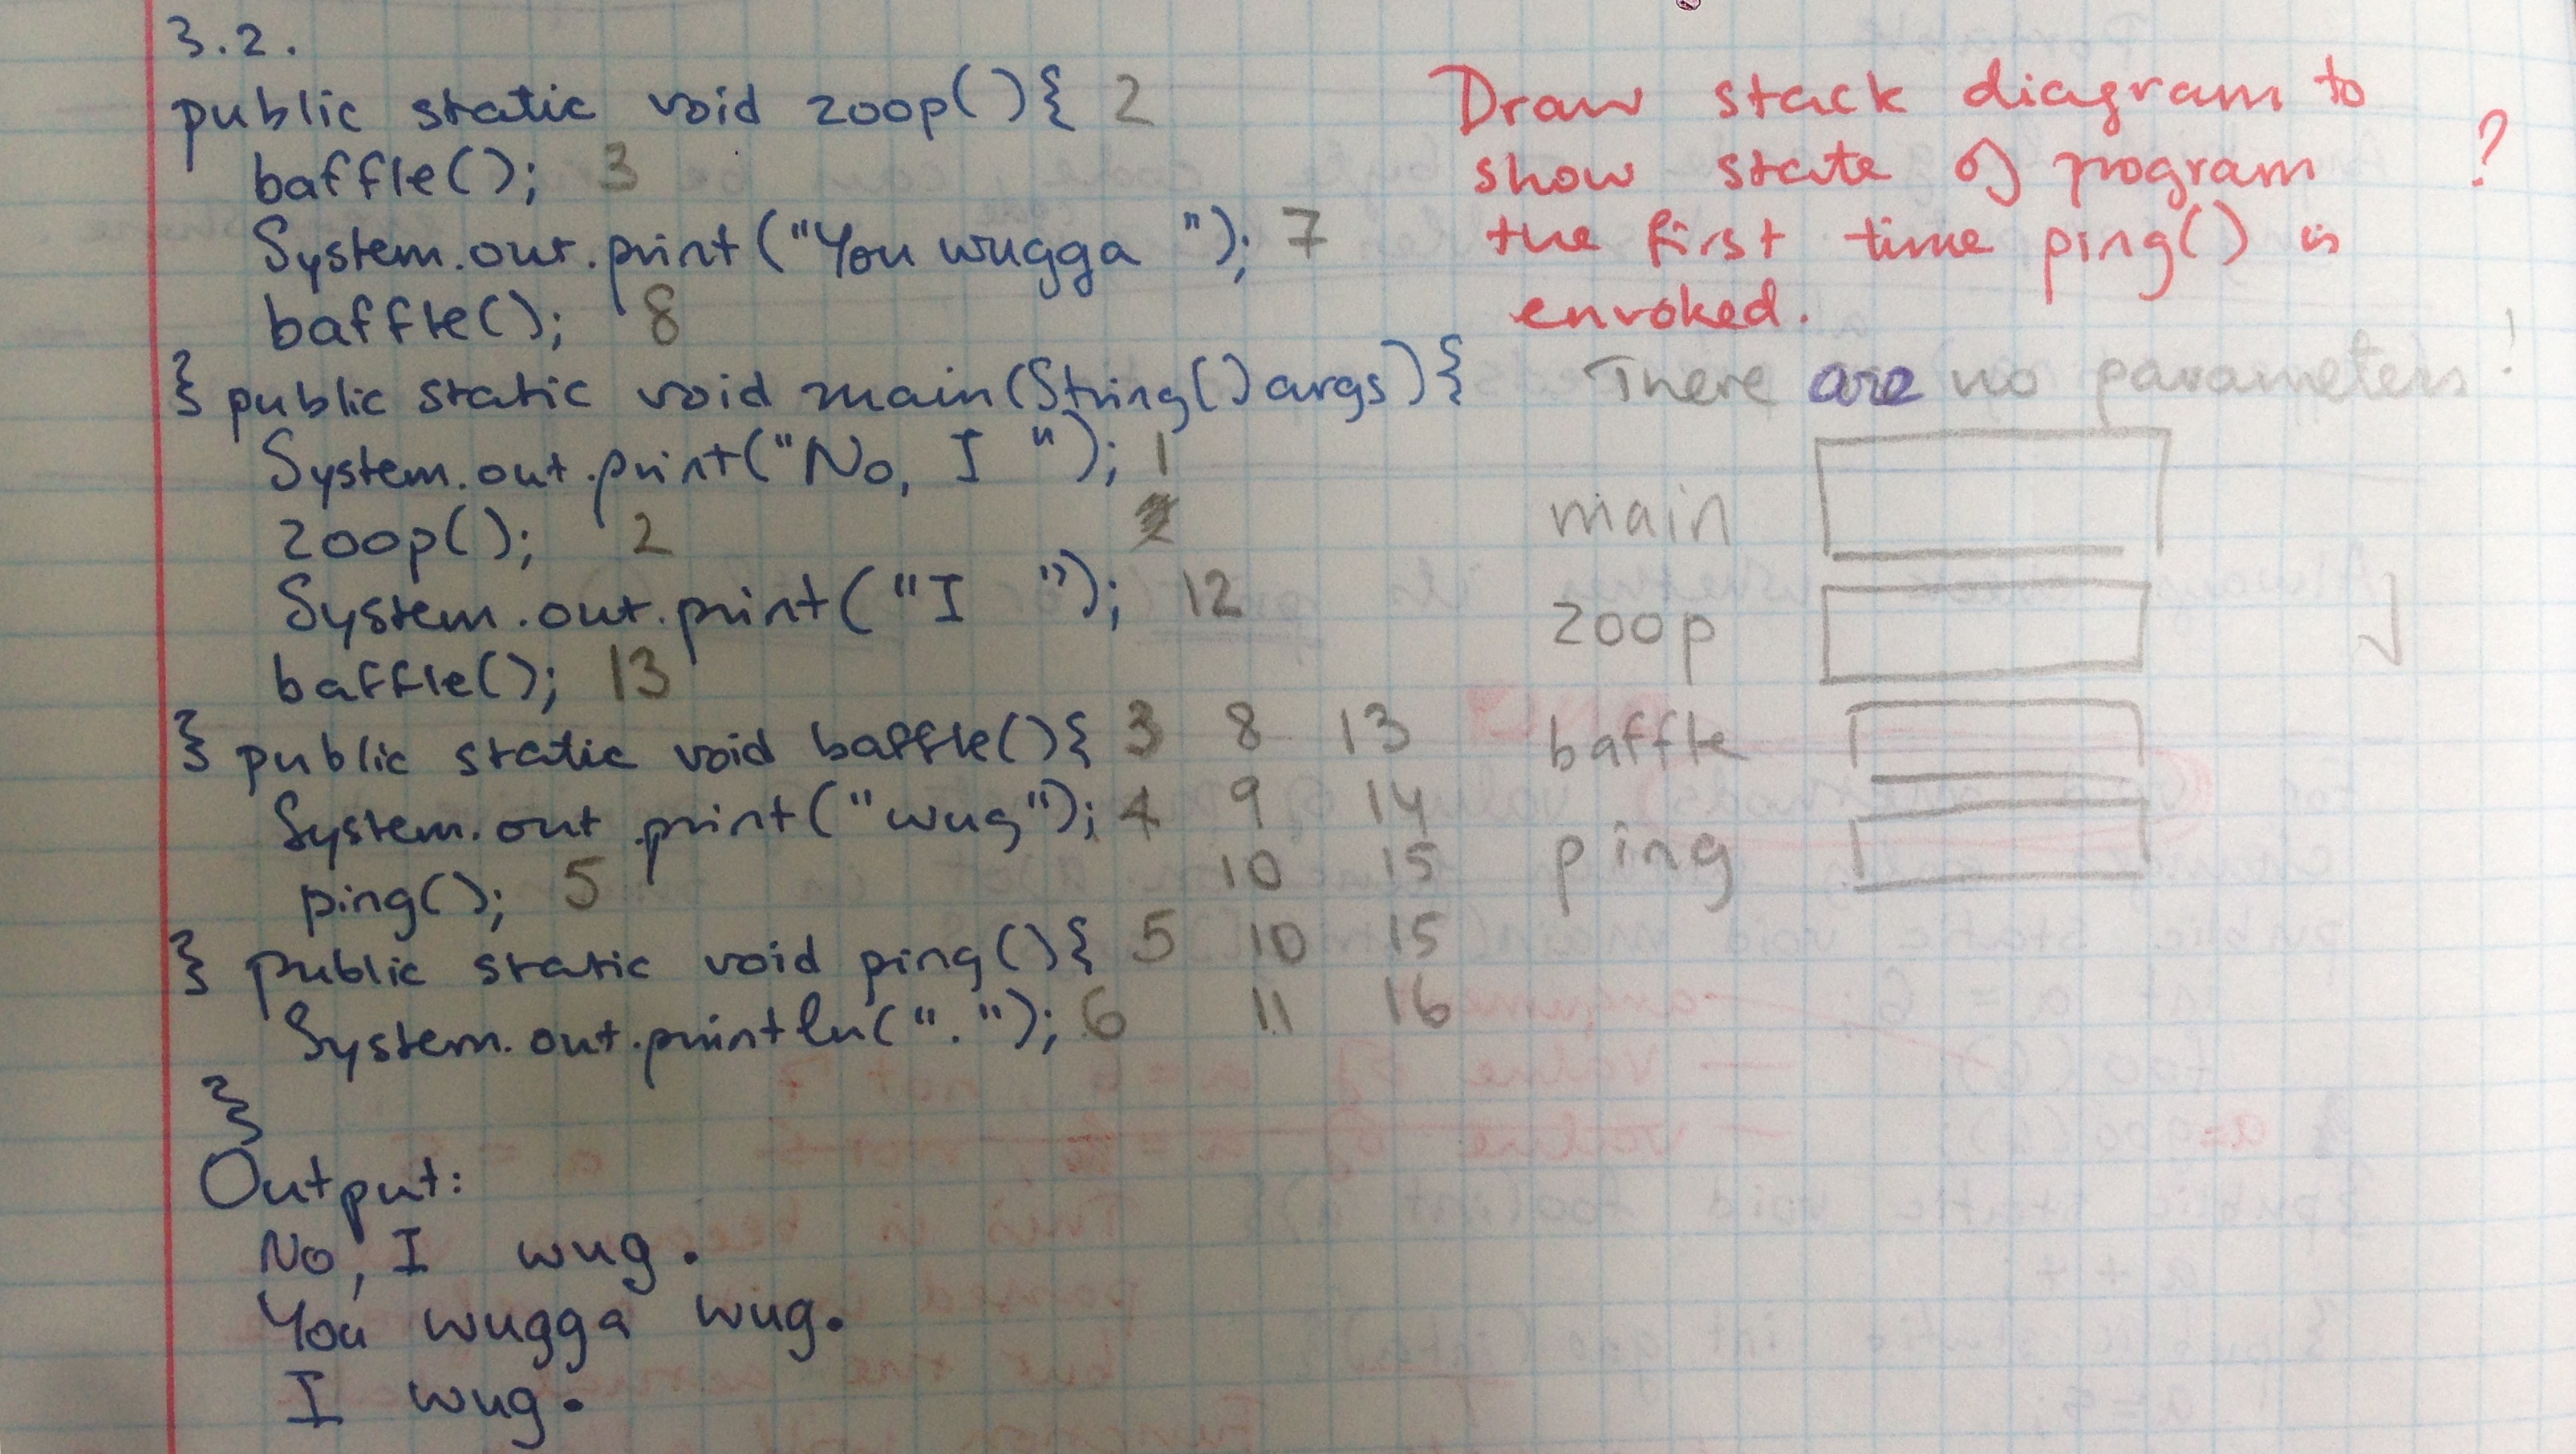 3.2.
public static void zoop(){ 2
baffle(); 3
System.out.print("You wugga "); 7
baffle(); 8
} public static void main(String[] args){
System.out.print("No, I "); 1
zoop(); 2
System.out.print("I "); 12
baffle(); 13
} public static void baffle(){ 3 8 13
System.out.print("wug"); 4 9 14
ping(); 5 10 15
} public static void ping(){ 5 10 15
System.out.println("."); 6 11 16
}
Output:
No, I wug.
You wugga wug.
I wug.
Draw stack diagram to
show state of program ?
the first time ping() is
envoked.
There are no parameters!
main
zoop
baffle
ping